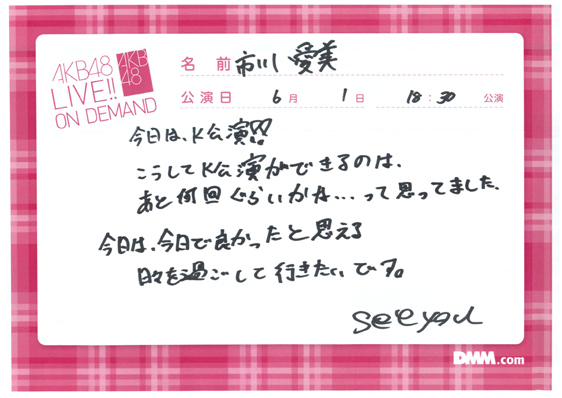 AKB48
LIVE!!
ON DEMAND
AKB
48
名 前 市川 愛美
公演日 6月 1日 18:30 公演
今日は、K公演!!
こうしてK公演ができるのは、
あと何回ぐらいかな...って思ってました。
今日は、今日で良かったと思える
日々を過ごして行きたいです。
see you
DMM.com